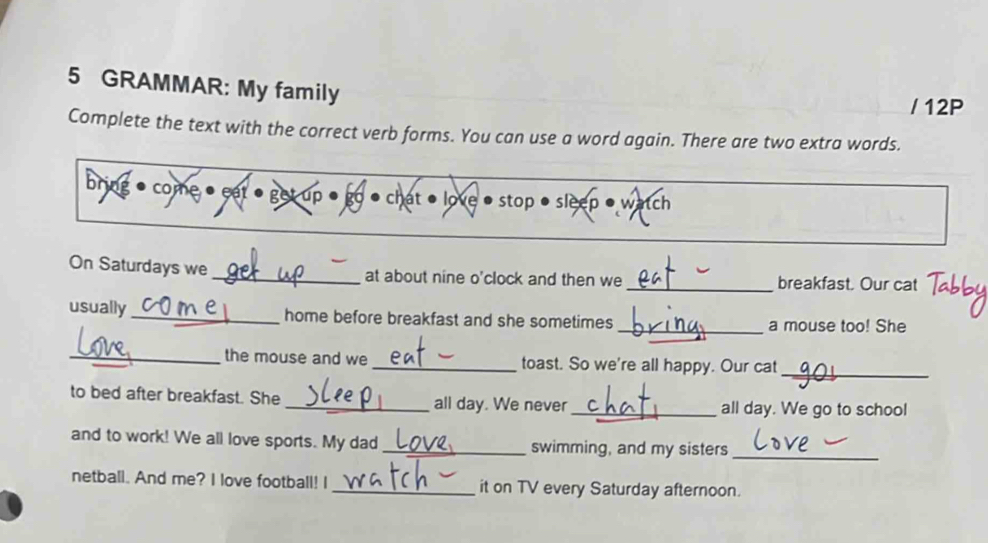 5 GRAMMAR: My family
/ 12P
Complete the text with the correct verb forms. You can use a word again. There are two extra words.
bring • come • eat • get up • go • chat • love • stop • sleep • watch
On Saturdays we get up at about nine o'clock and then we eat breakfast. Our cat Tabby
usually come home before breakfast and she sometimes bring a mouse too! She
Love the mouse and we eat toast. So we're all happy. Our cat go
to bed after breakfast. She sleep all day. We never chat all day. We go to school
and to work! We all love sports. My dad Love swimming, and my sisters Love
netball. And me? I love football! I watch it on TV every Saturday afternoon.